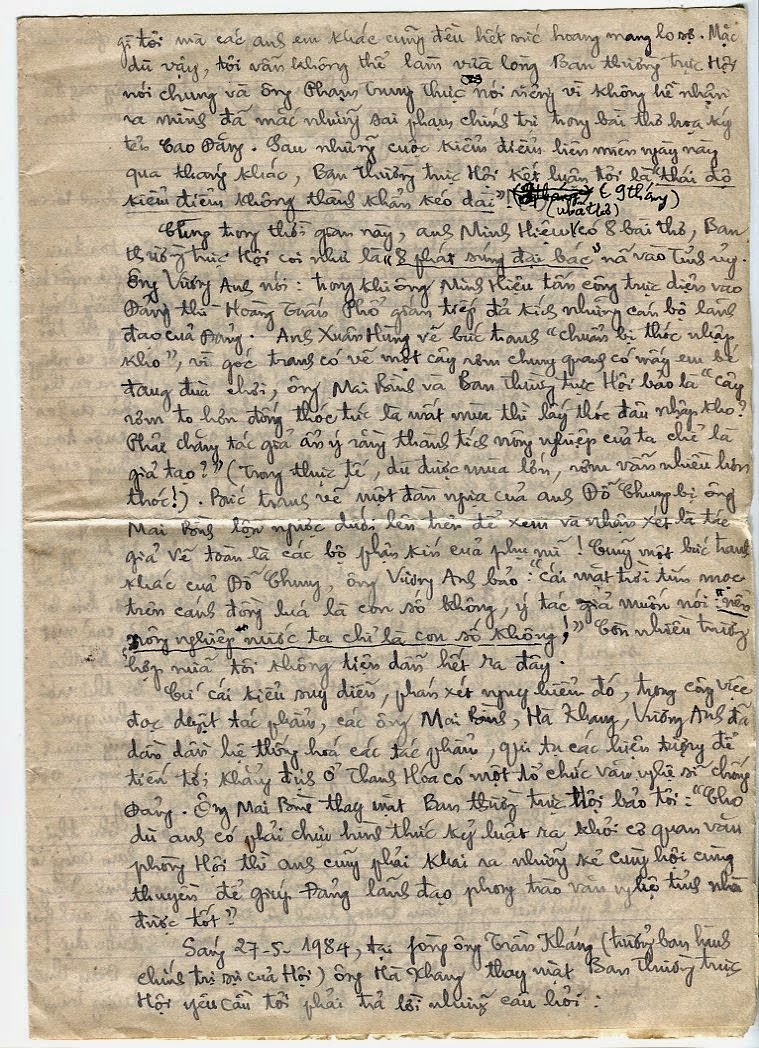 gì tôi mà các anh em khác cũng đều hết sức hoang mang lo sợ. Mặc
dù vậy, tôi vẫn không thể làm vừa lòng Ban thường trực Hội
nói chung và ông Phạm Trung Thực nói riêng vì không hề nhận
ra mình đã mắc những sai phạm chính trị trong bài thơ họa ký
tên Cao Đăng. Sau những cuộc kiểm điểm liên miên ngày này
qua tháng khác, Ban Thường trực Hội kết luận tôi là "thái độ
kiểm điểm không thành khẩn kéo dài"! (9 tháng)
Cũng trong thời gian này, anh Minh Hiệu (nhà thơ) có 8 bài thơ, Ban
thường trực Hội coi như là "8 phát súng đại bác" nã vào Tỉnh ủy.
Ông Vương Anh nói: trong khi ông Minh Hiệu tấn công trực diện vào
Đảng thì Hoàng Tuấn Phổ gián tiếp đả kích những cán bộ lãnh
đạo của Đảng. Anh Xuân Hùng vẽ bức tranh "chuẩn bị thóc nhập
kho", vì góc tranh có vẽ một cây rơm chung quanh có mấy em bé
đang đùa chơi, ông Mai Bình và Ban Thường trực Hội bảo là "cây
rơm to hơn đống thóc tức là mất mùa thì lấy thóc đâu nhập kho?
Phải chăng tác giả ẩn ý rằng thành tích nông nghiệp của ta chỉ là
giả tạo?" (Trong thực tế, dù được mùa lớn, rơm vẫn nhiều hơn
thóc!). Bức tranh vẽ một đàn ngựa của anh Đỗ Chung bị ông
Mai Bình lộn ngược dưới lên trên để xem và nhận xét là tác
giả vẽ toàn là các bộ phận kín của phụ nữ! Cũng một bức tranh
khác của Đỗ Chung, ông Vương Anh bảo: "cái mặt trời tím mọc
trên cánh đồng lúa là con số không, ý tác giả muốn nói "nền
nông nghiệp" nước ta chỉ là con số không!" Còn nhiều trường
hợp nữa tôi không tiện dẫn hết ra đây.
Cứ cái kiểu suy diễn, phán xét nguy hiểm đó, trong công việc
đọc duyệt tác phẩm, các ông Mai Bình, Hà Khang, Vương Anh đã
dần dần hệ thống hoá các tác phẩm, qui tụ các hiện tượng để
tiến tới khẳng định ở Thanh Hóa có một tổ chức văn nghệ sĩ chống
Đảng. Ông Mai Bình thay mặt Ban thường trực Hội bảo tôi: "Cho
dù anh có phải chịu hình thức kỷ luật ra khỏi cơ quan văn
phòng Hội thì anh cũng phải khai ra những kẻ cùng hội cùng
thuyền để giúp Đảng lãnh đạo phong trào văn nghệ tỉnh nhà
được tốt"
Sáng 27-5-1984, tại phòng ông Trần Kháng (trưởng ban hành
chính trị sự của Hội) ông Hà Khang thay mặt Ban Thường trực
Hội yêu cầu tôi phải trả lời những câu hỏi: